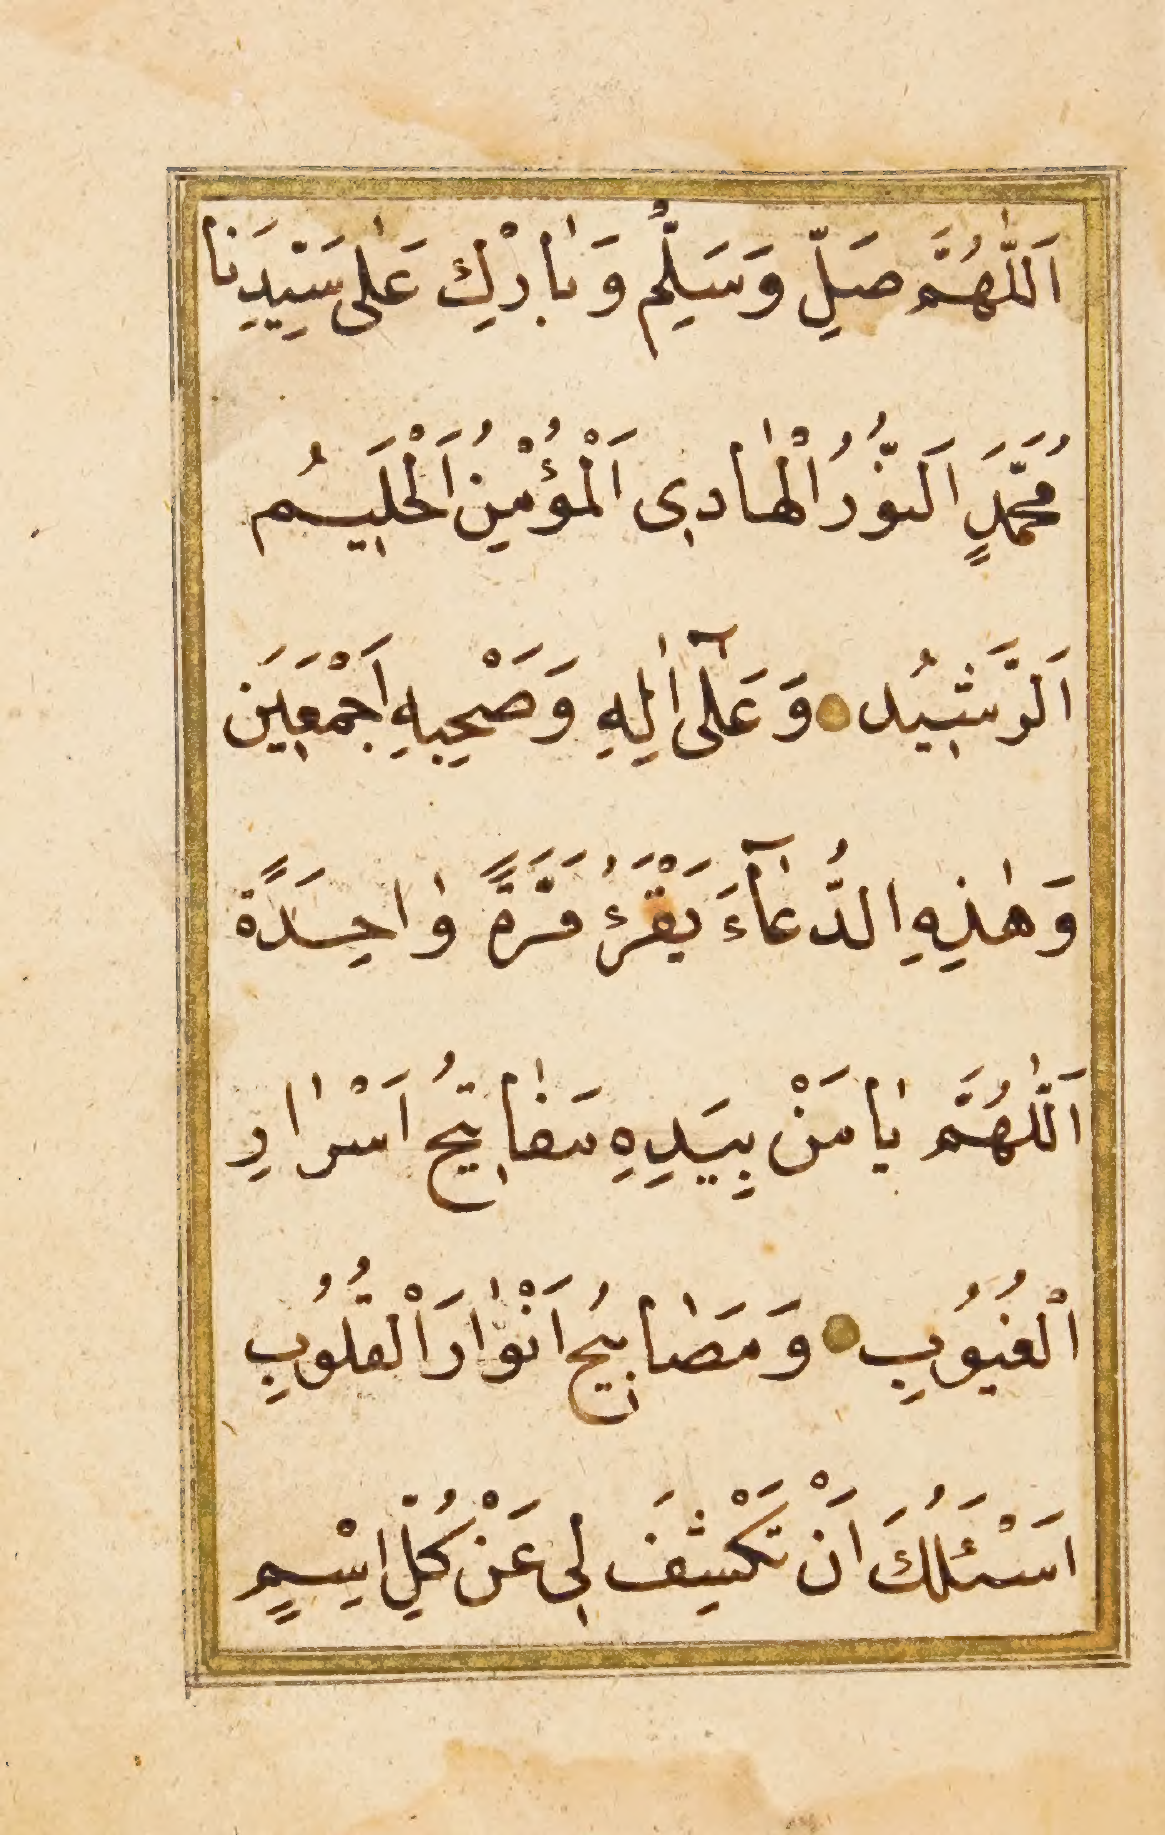 اَللّٰهُمَّ صَلِّ وَسَلِّمْ وَبٰارْكِ عَلٰى سَيِّدِنَا
مُحَمَّدٍ اَلنُّورُ الْهٰادِى اَلْمُؤْمِنُ اَلْحَلِيمُ
اَلرَّشٖيدُ وَعَلٰٓى اٰلِهِ وَصَحْبِهِ اَجْمَعٖينَ
وَهٰذِهِ الدُّعٰٓاءَ يَقْرَؤُ مَرَّةً وٰاحِدَةً
اَللّٰهُمَّ يٰا مَنْ بِيَدِهِ مَفٰاتٖيحُ اَسْرٰارِ
الْغُيُوبِ وَمَصٰابٖيحُ اَنْوٰارَ الْقُلُوبِ
اَسْئَلُكَ اَنْ تَكْشِفَ لٖى عَنْ كُلِّ اِسْمٍ